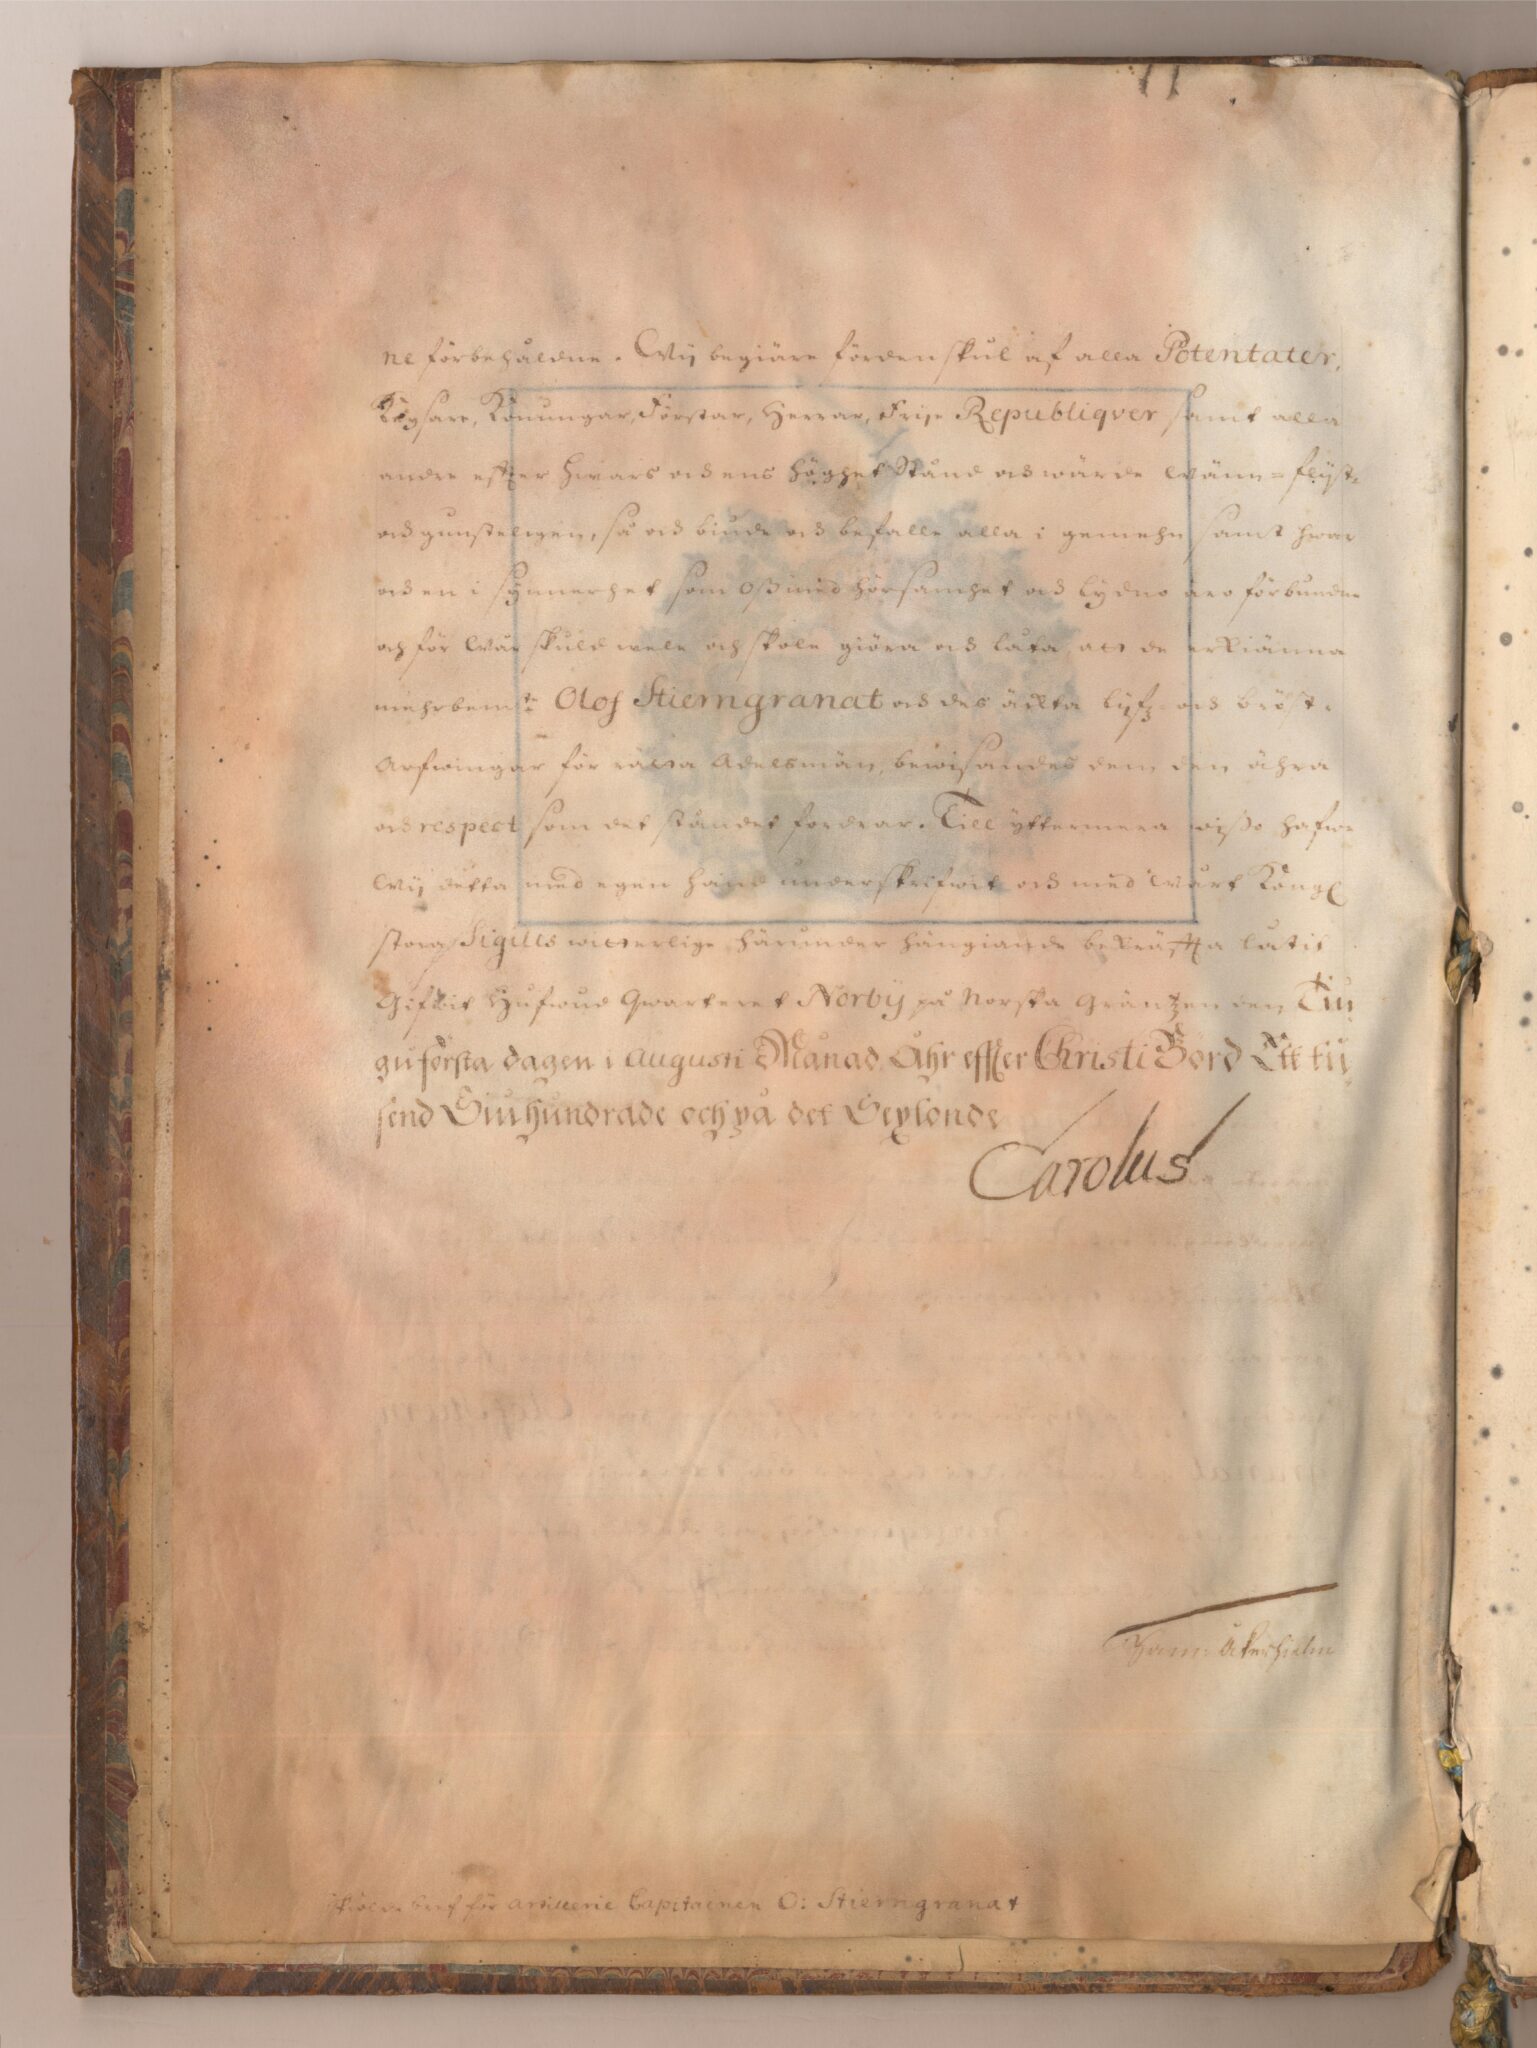 ne förbehåldne. Wij begiäre fördenskul af alla Potentater,
Käijsare, Konungar, Förstar, Herrar, Frije Republiqver samt alla
andre effter hwars och ens höghet Stånd och wärde Wänn= flijt-
och gunsteligen, så och biude och befalle alla i gemehn samt hwar
och en i synnerhet som Oß med hörsamhet och lydno äro förbundne
och för Wår skuld wele och skole giöra och låta, att de erkiänna
mehrbem:te Olof Stierngranat och des ächta lijfz- och bröst-
Arfwingar för rätta Adelsmän, bewisandes dem den ähra
och respect som det ståndet fordrar. Till yttermera wißo hafwe
Wij detta med egen hand underskrifwit och med Wårt Kongl
stora Sigills witterlige härunder hängiande bekräffta låtit
Gifwit Hufwud Qwarteret Norby på Norska Gräntzen den Tiu-
guförsta dagen i Augusti Månad, Åhr effter Christi Börd Ett tu-
send Siuhundrade och på det Sextonde
Carolus
Sam: Åkerhielm
Skiölde bref för Artillerie Capitainen O: Stierngranat